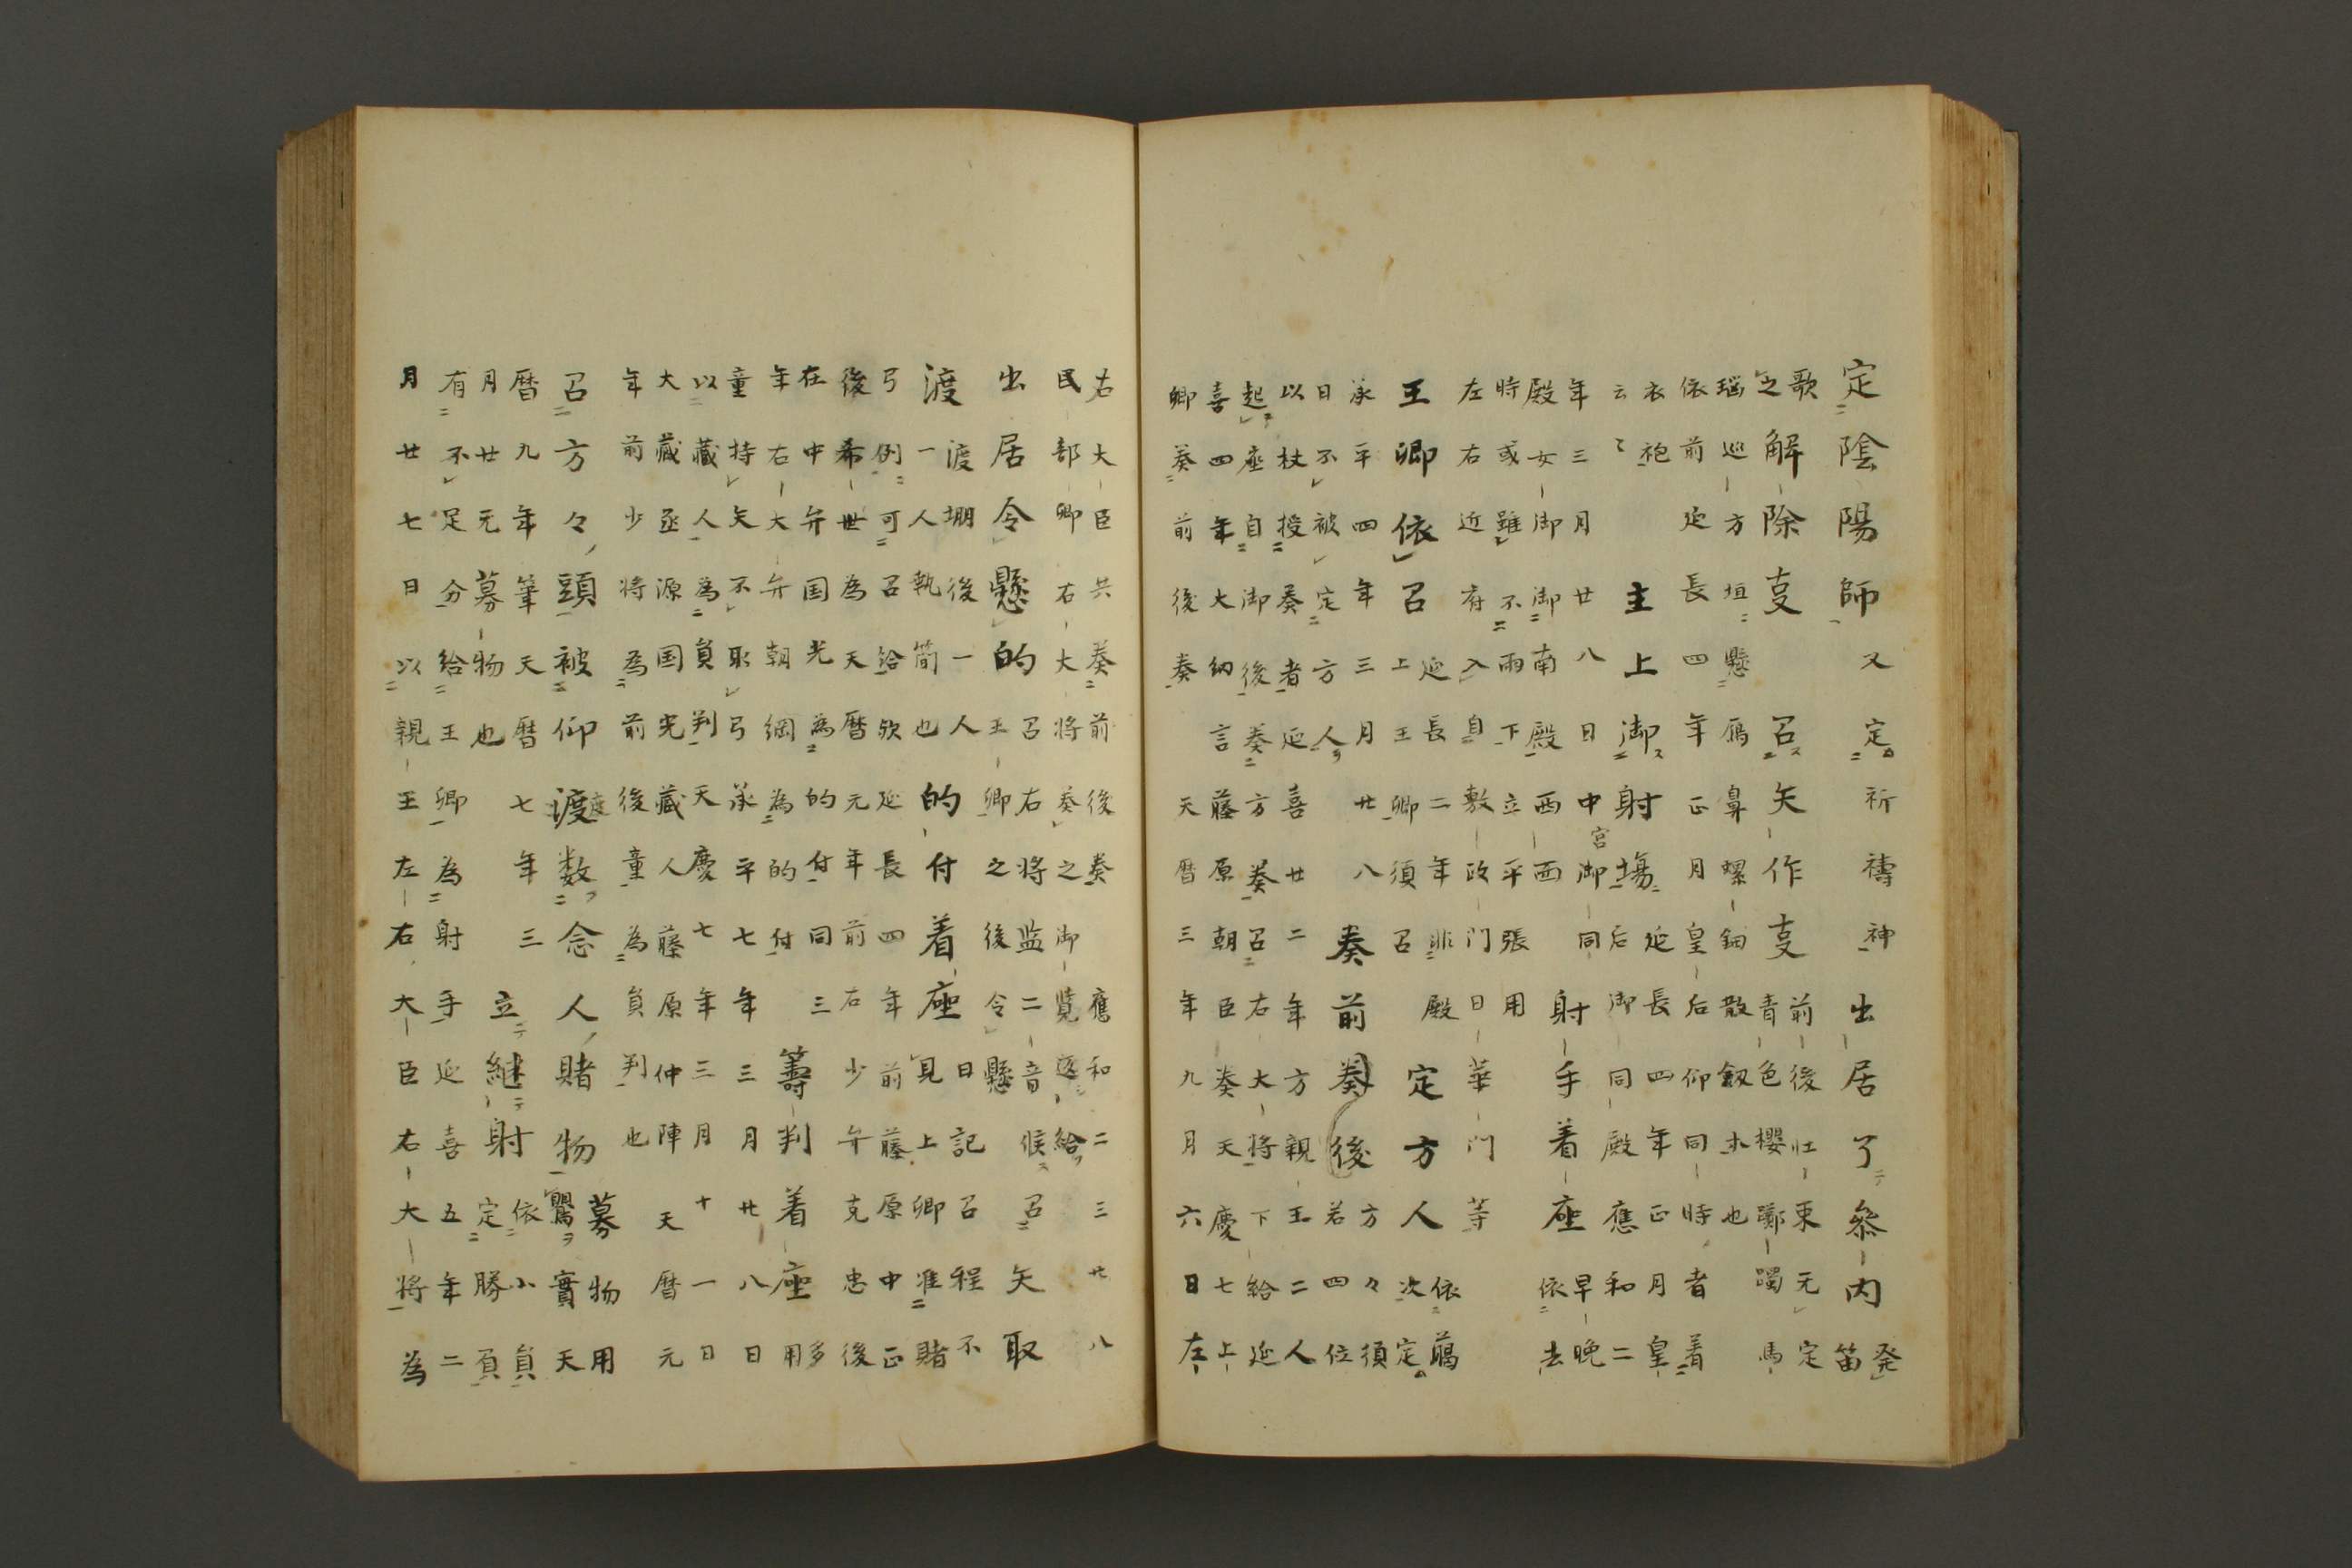 定陰陽師又定祈禱神出居了參内発
笛
歌
之解除㕝召矢作㕝前後壮束无定
青色櫻躑躅馬
瑙巡方垣懸鴈鼻螺鈿散釼木也
依前延長四年正月皇后仰同時者着
衣袍
云々
主上御射塲延長四年正月皇
后御同殿應和二
年三月廿八日中宮御同
殿女御御南殿西西
射手着座早晩
依去
時或雖不雨下立平張用
左右近府入自敷政門日華門等
王卿依召延長二年非殿
上王卿須召
定方人依
次定
承平四年三月廿八
日不被定方人
奏前奏後方々須
若四位
以杖授奏者延喜廿二年方親王二人
起座自御後奏方奏召右大将下給延
喜四年大納言藤原朝臣奏天慶七上
卿奏前後奏天暦三年九月六日左
右大臣共奏前後奏應和二三廿八
民部卿右大将奏之御覧返給
出居令懸的召右将監二音候
王卿之後令懸
召矢取
渡渡堋後一人
一人執簡也
的付着座日記召程不
見上卿准賭
弓例可召給欤延長四年前藤原中正
後希世為天暦元年前右少弁克忠後
在中弁国光為的付同三
年右大弁朝綱為的付
籌判着座多
用
童持矢不取弓承平七年三月廿八日
以藏人為負判天慶七年三月十一日
大藏丞源国光藏人藤原仲陣天暦元
年前少将為前後童為負判也
召方々頭被仰渡度数念人賭物募物用
驚實天
暦九年筆天暦七年三
月廿无募物也
立継射依小負
定勝負
有不足分給王卿為射手延喜五年二
月廿七日以親王左右大臣右大将為